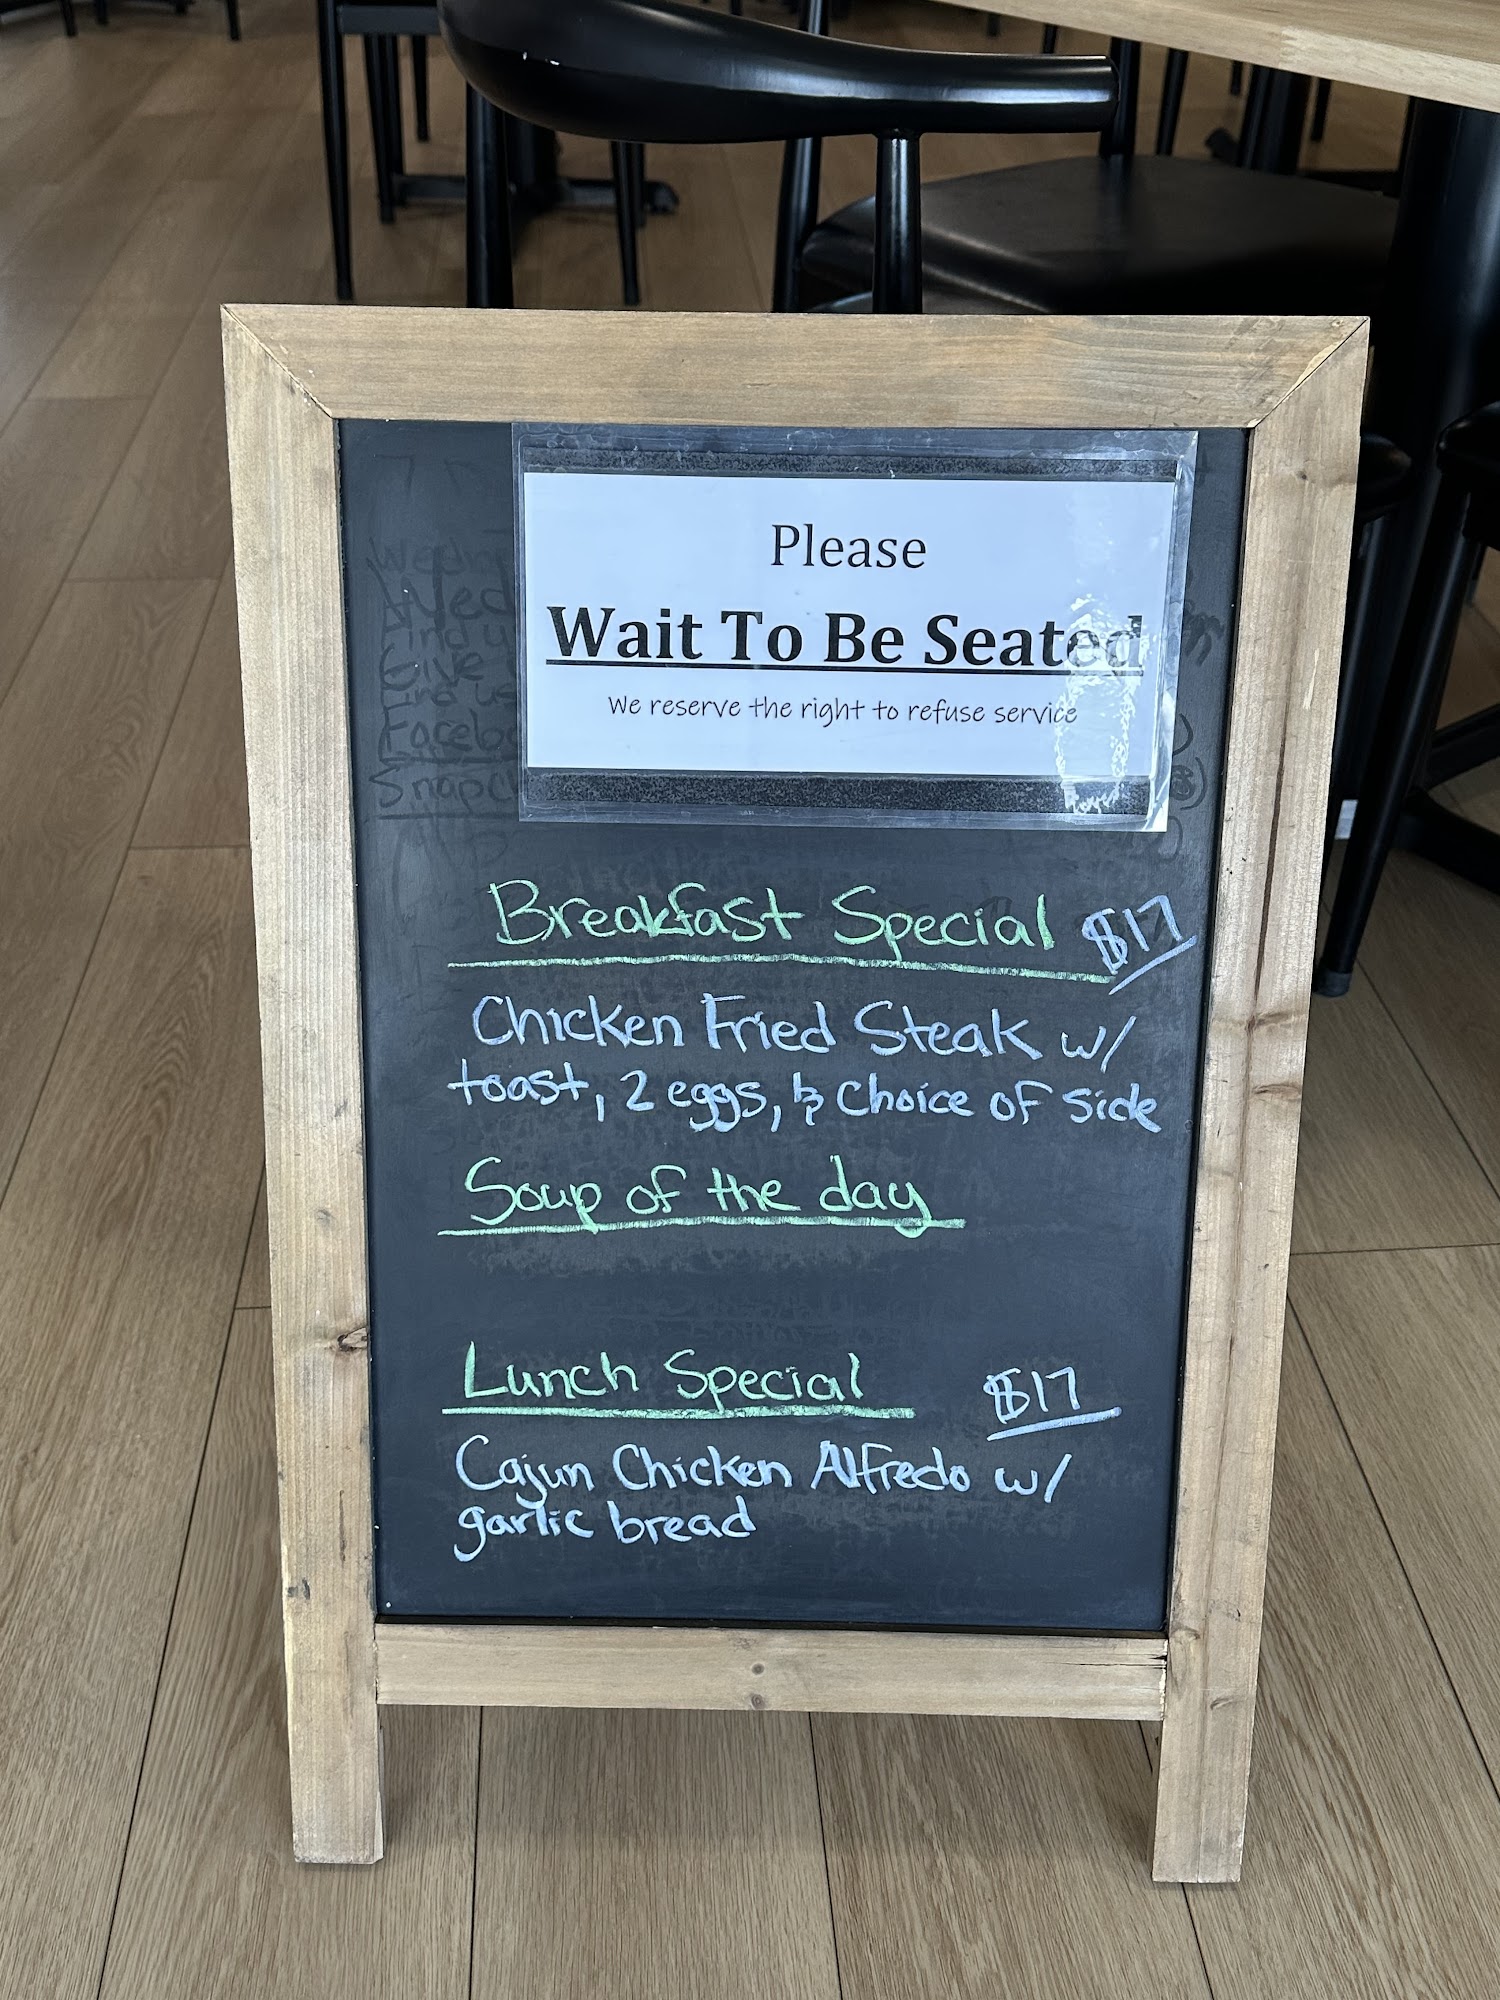 Please
Wait To Be Seated
We reserve the right to refuse service
Breakfast Special $17
Chicken Fried Steak w/
toast, 2 eggs, & choice of side
Soup of the day
Lunch Special $17
Cajun Chicken Alfredo w/
garlic bread